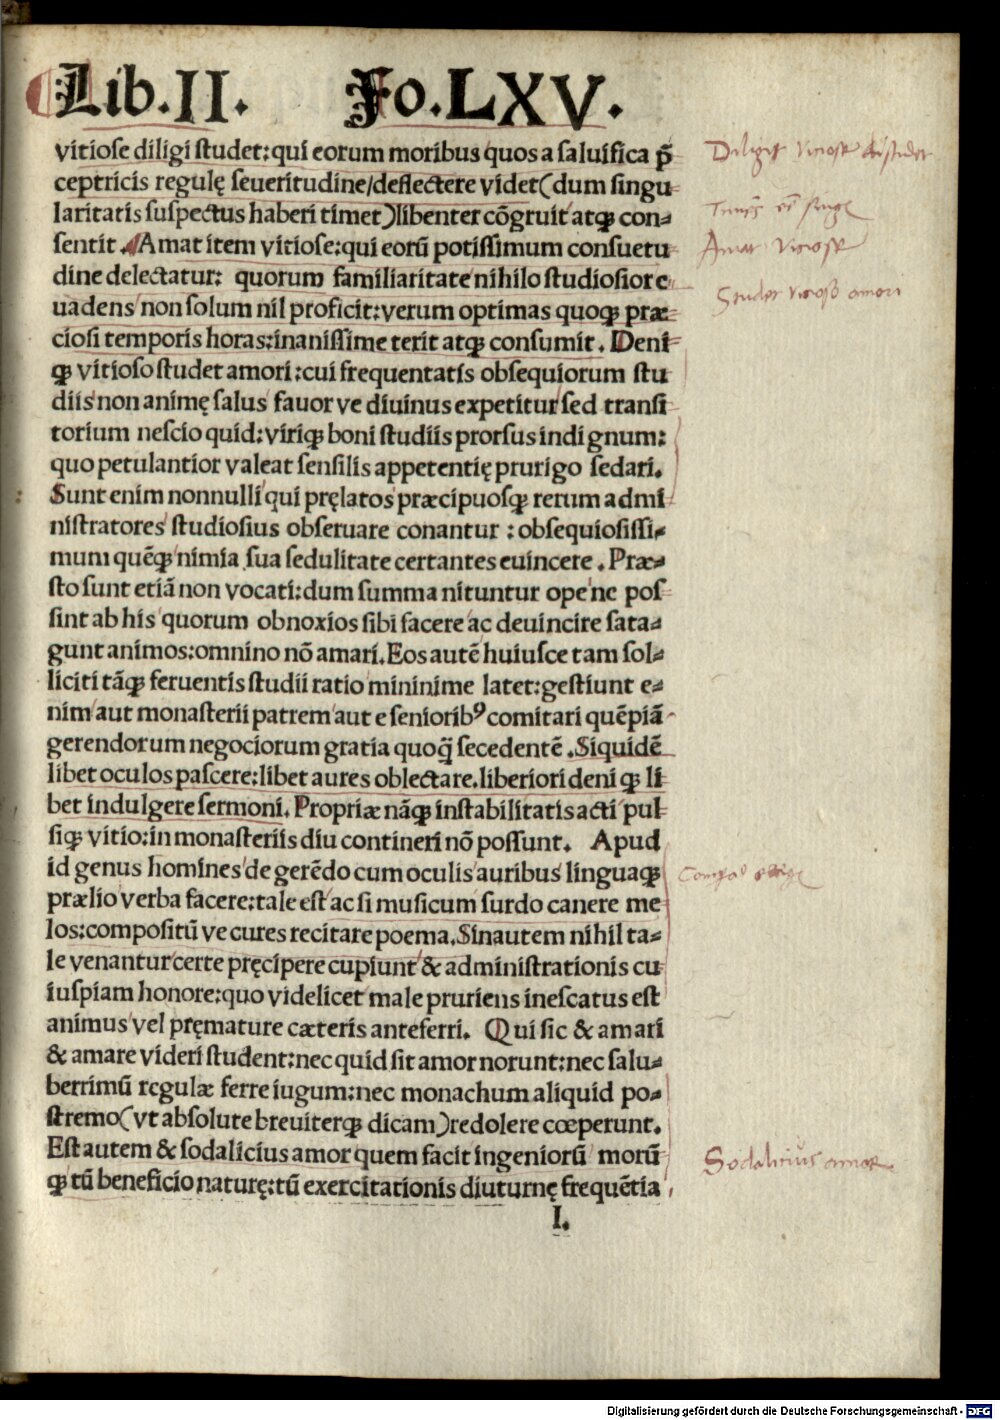 Lib.II. Fo.LXV.
vitiose diligi studet: qui eorum moribus quos a saluifica p̄
ceptricis regulę seueritudine/deflectere videt (dum singu⸗
laritatis suspectus haberi timet) libenter cōgruit atqꝫ con⸗
sentit. Amat item vitiose: qui eorū potissimum consuetu
dine delectatur: quorum familiaritate nihilo studiosior e⸗
uadens non solum nil proficit: verum optimas quoqꝫ præ⸗
ciosi temporis horas: inanissime terit atqꝫ consumit. Deni⸗
qꝫ vitioso studet amori: cui frequentatis obsequiorum stu
diis non animę salus fauor ve diuinus expetitur sed transi⸗
torium nescio quid: viriqꝫ boni studiis prorsus indignum:
quo petulantior valeat sensilis appetentię prurigo sedari.
Sunt enim nonnulli qui pręlatos præcipuosqꝫ rerum admi⸗
nistratores studiosius obseruare conantur: obsequiosissi⸗
mum quēqꝫ nimia sua sedulitate certantes euincere. Præ⸗
sto sunt etiā non vocati: dum summa nituntur ope ne pos⸗
sint ab his quorum obnoxios sibi facere ac deuincire sata⸗
gunt animos: omnino nō amari. Eos autē huiusce tam sol⸗
liciti tāqꝫ feruentis studii ratio mininime latet: gestiunt e⸗
nim aut monasterii patrem aut e seniorib⁹ comitari quēpiā
gerendorum negociorum gratia quoq̄ secedentē. Siquidē
libet oculos pascere: libet aures oblectare. liberiori deniqꝫ li⸗
bet indulgere sermoni. Propriæ nāqꝫ instabilitatis acti pul⸗
siqꝫ vitio: in monasteriis diu contineri nō possunt. Apud
id genus homines de gerēdo cum oculis auribus linguaqꝫ
prælio verba facere: tale est ac si musicum surdo canere me⸗
los: compositū ve cures recitare poema. Sin autem nihil ta⸗
le venantur certe pręcipere cupiunt & administrationis cu⸗
iuspiam honore: quo videlicet male pruriens inescatus est
animus vel pręmature cæteris anteferri. Qui sic & amari
& amare videri student: nec quid sit amor norunt: nec salu⸗
berrimū regulæ ferre iugum: nec monachum aliquid po⸗
stremo (vt absolute breuiterqꝫ dicam) redolere cœperunt.
Est autem & sodalicius amor quem facit ingeniorū morū⸗
qꝫ tū beneficio naturę: tū exercitationis diuturnę frequētia
I.
Amat viciose
Studet vicioso amori
Sodalicius amor
Digitalisierung gefördert durch die Deutsche Forschungsgemeinschaft - DFG